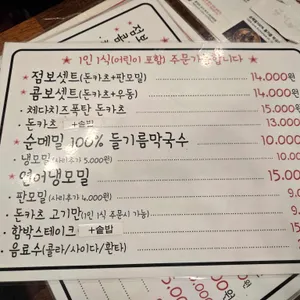 ★ 1인 1식(어린이 포함) 주문가능합니다
★ 점보셋트(돈카츠+판모밀) 14.000원
★ 콤보셋트(돈카츠+우동) 14.000원
· 체다치즈폭탄 돈카츠 15.000
· 돈카츠 +솥밥 13.000
★ 순메밀 100% 들기름막국수 10.000
· 냉모밀(사이추가 5.000원) 10.00
★ 연어냉모밀 15.00
· 판모밀(사이추가 4.000원) 9.0
· 돈카츠 고기만(1인 1식 주문시 가능) 9.
· 함박스테이크 +솥밥
· 음료수(콜라/사이다/환타)